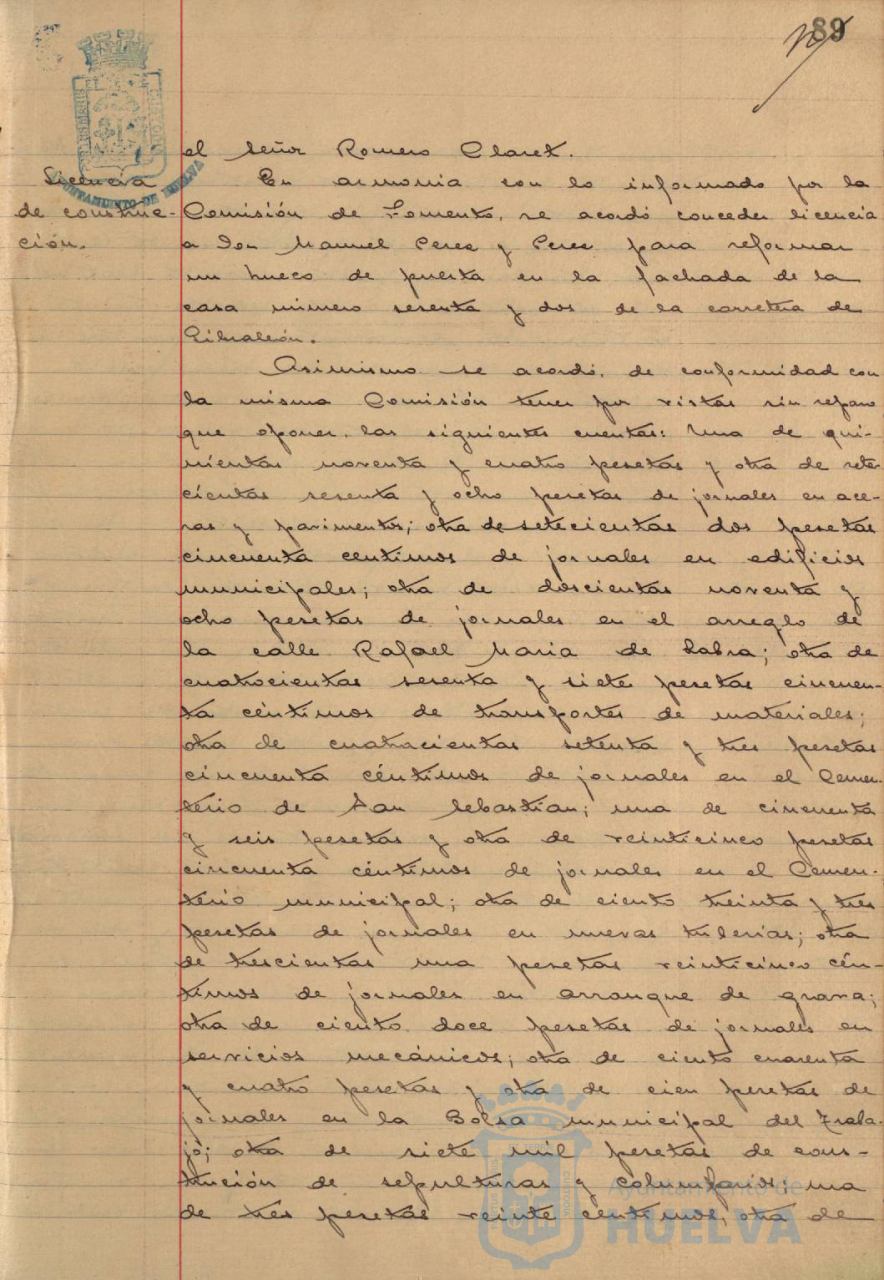 89
el señor Romero Claret.
Licencia de construc-
ción.
En armonia con lo informado por la
Comisión de Fomento, se acordó conceder licencia
a Don Manuel Perez y Perez para reformar
un hueco de puerta en la fachada de la
casa número sesenta y dos de la carretera de
Gibraleón.
Asimismo se acordó, de conformidad con
la misma Comisión tener por vistas sin reparo
que oponer, las siguientes cuentas: Una de qui-
nientas noventa y cuatro pesetas y otra de sete-
cientas sesenta y ocho pesetas de jornales en ace-
ras y pavimentos; otra de setecientas dos pesetas
cincuenta centimos de jornales en edificios
municipales; otra de doscientas noventa y
ocho pesetas de jornales en el arreglo de
la calle Rafael Maria de Labra; otra de
cuatrocientas sesenta y siete pesetas cincuen-
ta céntimos de transportes de materiales;
otra de cuatrocientas setenta y tres pesetas
cincuenta céntimos de jornales en el Cemen-
terio de San Sebastian; una de cincuenta
y seis pesetas y otra de veinticinco pesetas
cincuenta céntimos de jornales en el Cemen-
terio municipal; otra de ciento treinta y tres
pesetas de jornales en nuevas tuberías; otra
de trescientas una pesetas veinticinco cén-
timos de jornales en arranque de grava;
otra de ciento doce pesetas de jornales en
servicios mecánicos; otra de ciento cuarenta
y cuatro pesetas y otra de cien pesetas de
jornales en la Bolsa municipal del Traba-
jo; otra de siete mil pesetas de cons-
titución de sepulturas y columbarios; una
de tres pesetas veinte centimos, otra de
AYUNTAMIENTO DE HUELVA
Ayuntamiento de
HUELVA